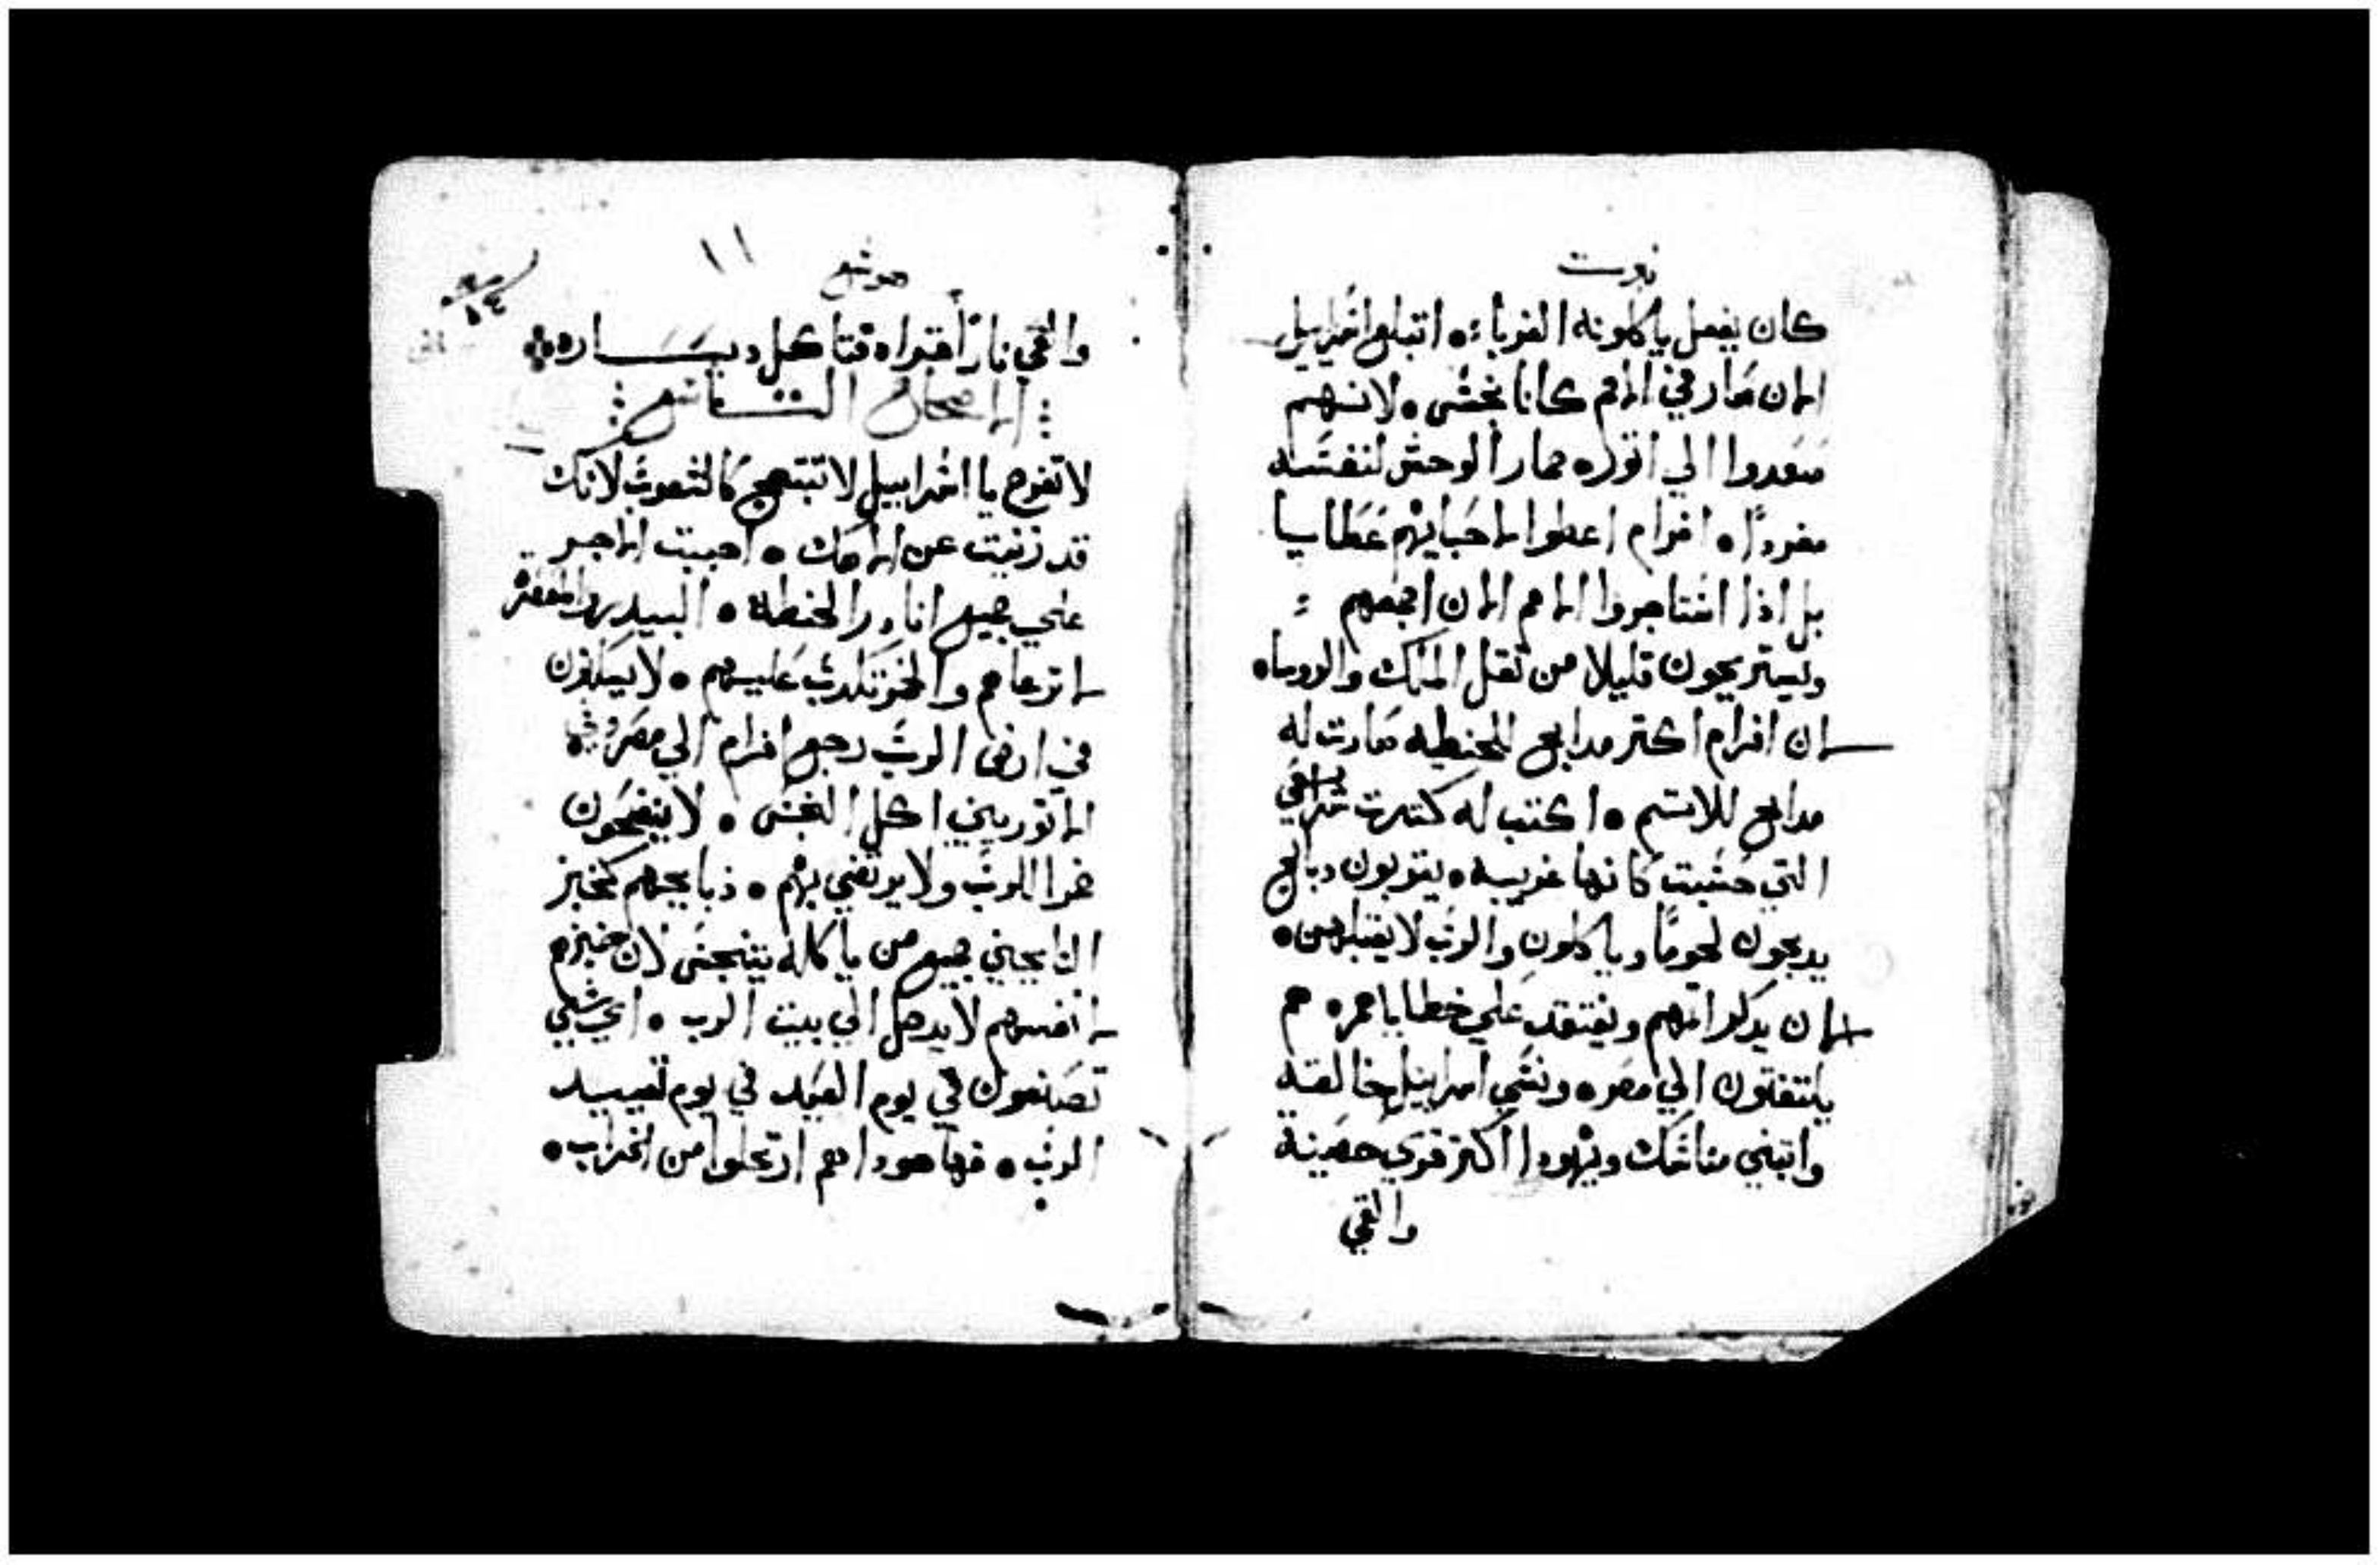 نبوت
كان يفعل ياكلونه الغرباء ٠ ابتلع اسراييل
الان صار في الامم كانا نجس ٠ لانهم
صعدوا الي اتور ٠ حمار الوحش لنفسه
مفردًا ٠ افرام اعطوا لاحبايهم عطايا
بل اذا استاجروا الامم الان اجمعهم
ويستريحون قليلا من تقل الملك والروسا ٠
ان افرام اكتر مدابح للخطيه صارت له
مدابح للاتم ٠ اكتب له كترت شرايعي
التي حسبت كانها غريبه ٠ يقربون دبايح
يدبحون لحومًا وياكلون والرب لا يقبلهن ٠
الان يدكر اتمهم ويفتقد علي خطاياهم ٠ هم
يلتفتون الي مصر ٠ ونسي اسراييل خالقه
وابتني مناسك ويهودا اكتر قري حصينة
والقي
هوشع
١١
والقي نارًا قراه فتاكل دياره
الاصحاح التاسع
لا تفرح يا اسراييل لا تبتهج كالشعوب لانك
قد زنيت عن الاهك ٠ احببت الاجر
علي جميع انادر الحنطة ٠ البيدر والمعصرة
لا ترعاهم والخمر تكدب عليهم ٠ لا يسكنون
في ارض الرب رجع افرام الي مصر وفي
الاتوريين اكل النجس ٠ لا ينضحون
خمرا للرب ولا يرتضي بهم ٠ ذبايحهم كخبز
النايحين جميع من ياكله يتنجس لان خبزهم
لانفسهم لا يدخل الي بيت الرب ٠ اي شي
تصنعون في يوم العيد في يوم تعييد
الرب ٠ فها هودا هم ارتحلوا من الخراب ٠